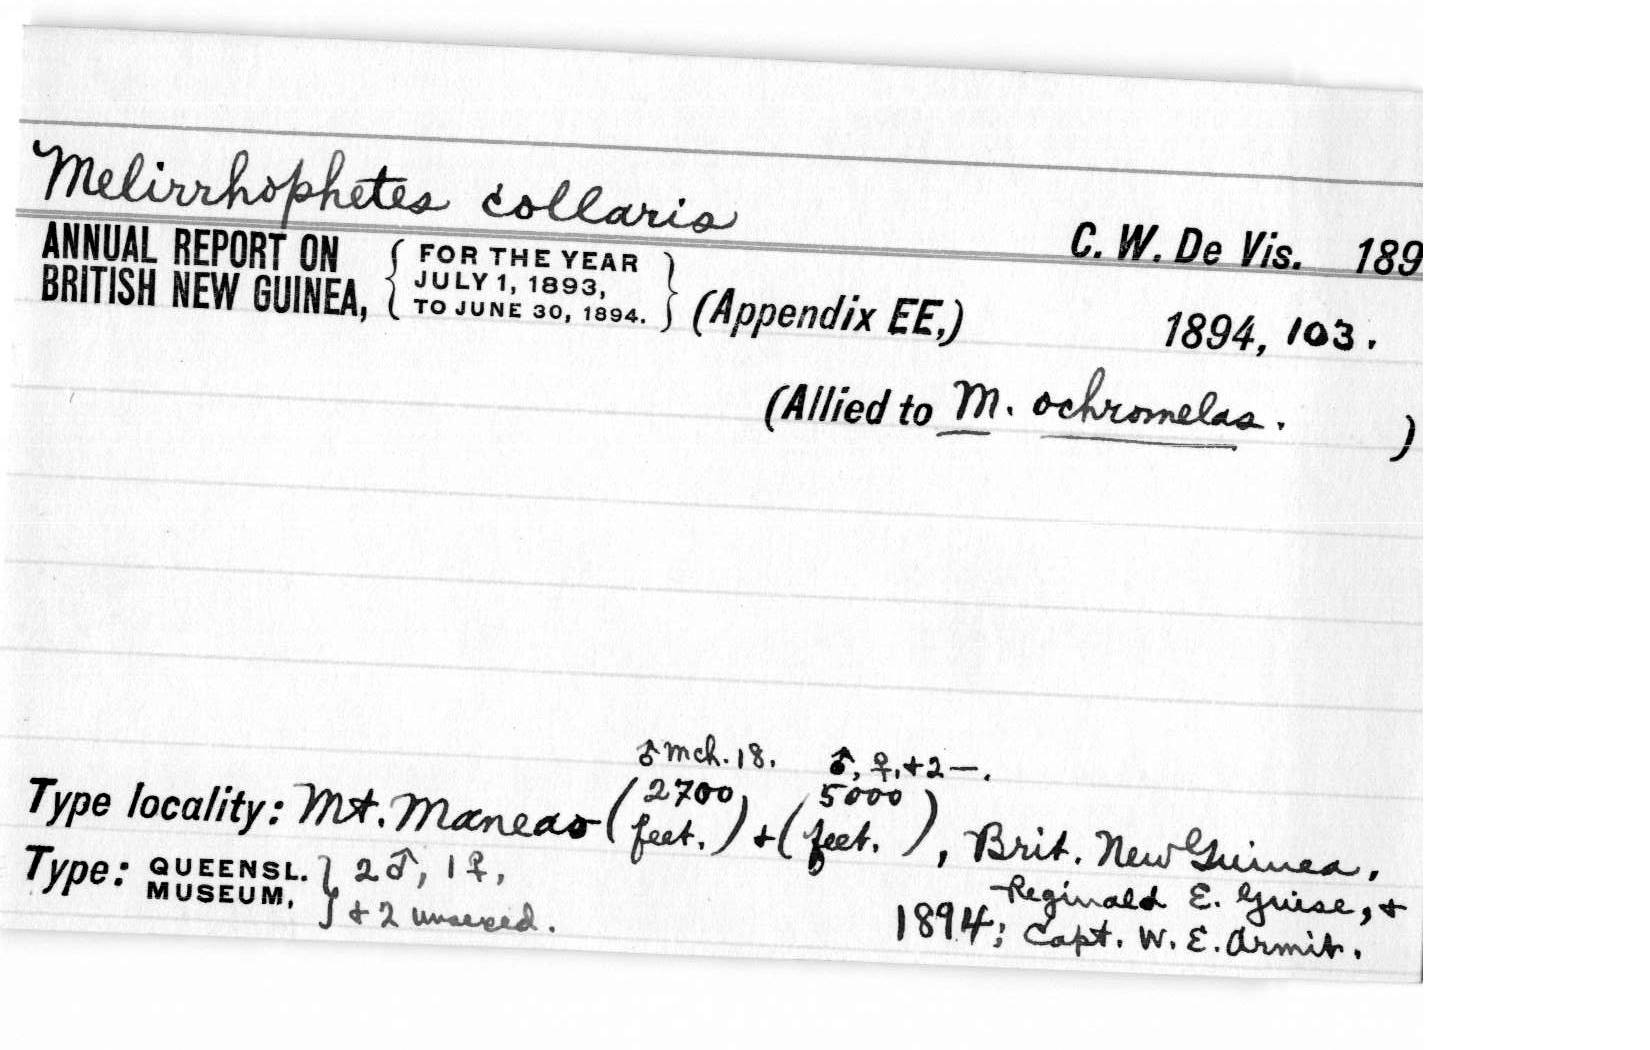 Melirrhophetes collaris
C. W. De Vis. 189
ANNUAL REPORT ON BRITISH NEW GUINEA, { FOR THE YEAR JULY 1, 1893, TO JUNE 30, 1894. } (Appendix EE,) 1894, 103.
(Allied to M. ochromelas. )
♂ Mch. 18. ♂, ♀, + 2 —.
Type locality: Mt. Maneao (2700 feet.) + (5000 feet.), Brit. New Guinea,
Type: QUEENSL. MUSEUM, } 2♂, 1♀, + 2 unsexed.
Reginald E. Guise, +
1894; Capt. W. E. Armit.